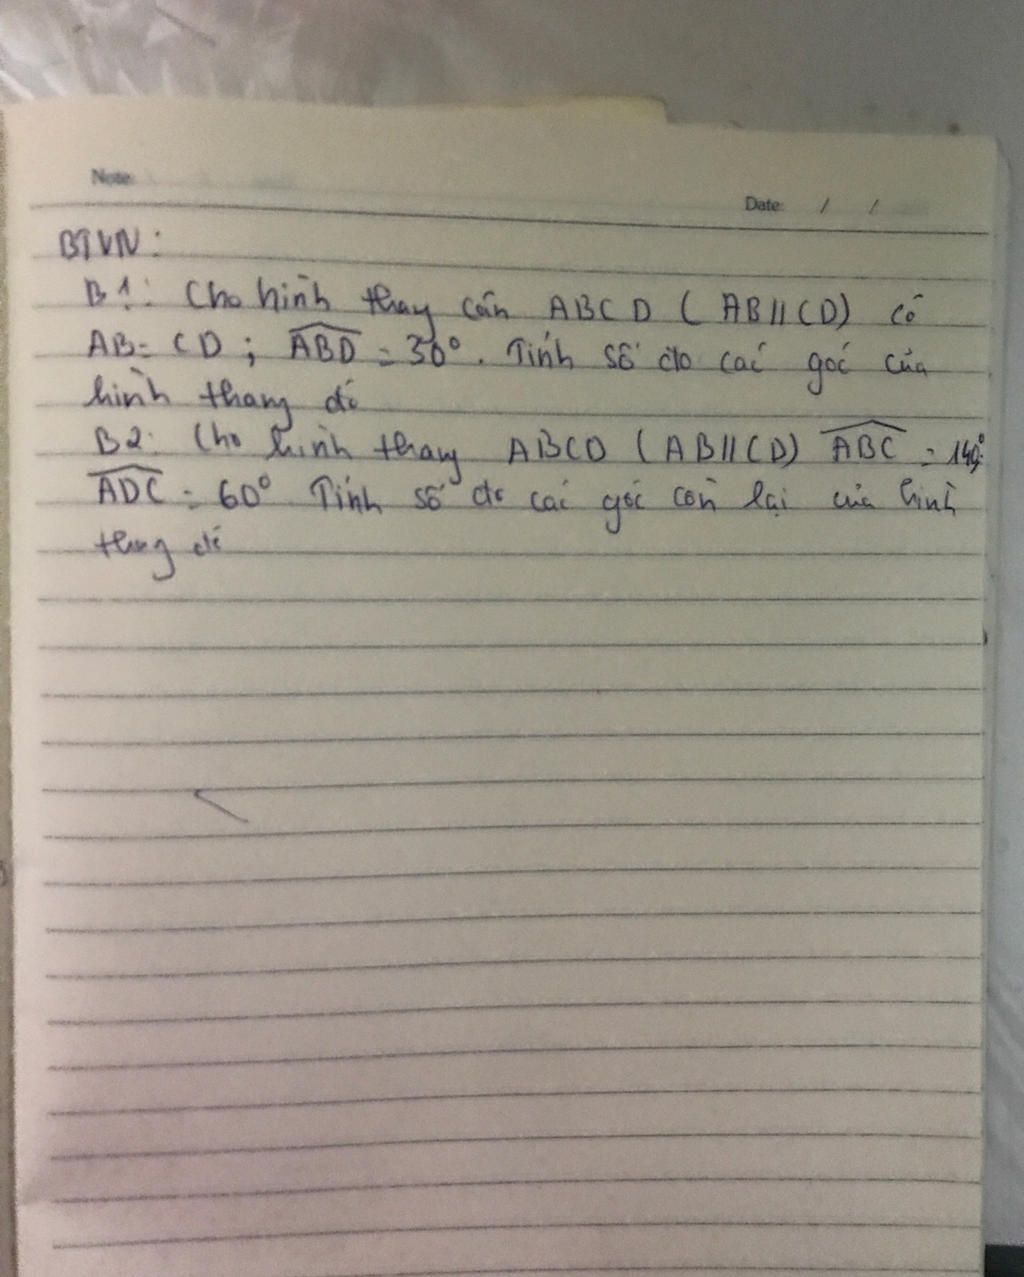 Note
Date: / /
BTVN:
B1: Cho hình thang cân ABCD (AB//CD) có
AB = CD; ABD = 30°. Tính số đo các góc của
hình thang đó
B2: Cho hình thang ABCD (AB//CD) ABC = 140°
ADC = 60° Tính số đo các góc còn lại của hình
thang đó